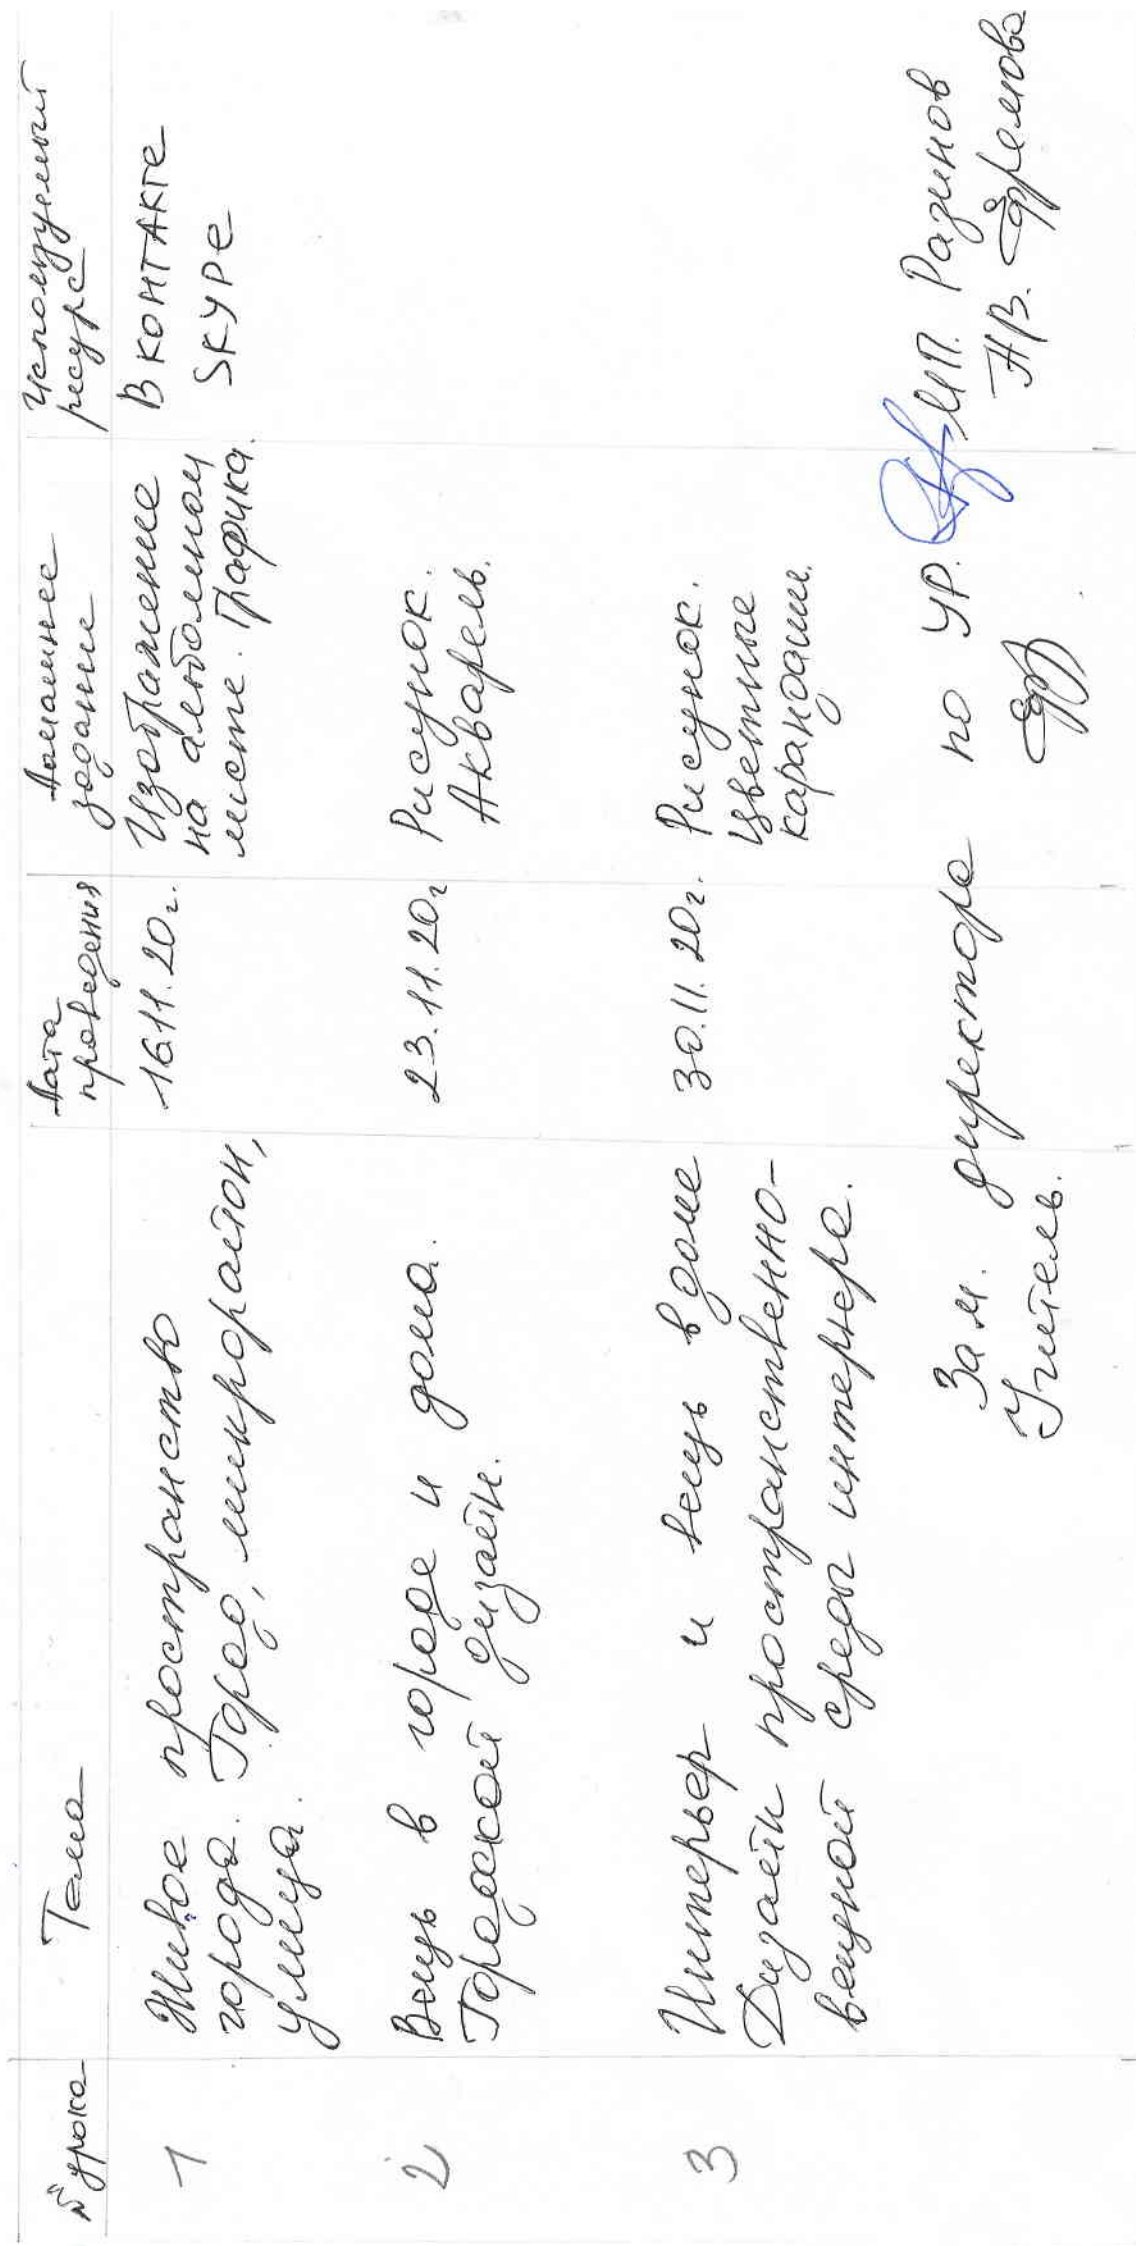 № урока
Тема
Дата
проведения
Домашнее
задание
Используемый
ресурс
1
Живое пространство
города. Город, микрорайон,
улица.
16.11.20г.
Изображение
на альбомном
листе. Графика.
В КОНТАКТЕ
SKYPE
2
Вещь в городе и дома.
Городской дизайн.
23.11.20г
Рисунок.
Акварель.
3
Интерьер и вещь в доме
Дизайн пространственно-
вещной среды интерьера.
30.11.20г.
Рисунок.
Цветные
карандаши.
Зам. директора по УР. И.П. Разинов
Учитель. Н.В. Ефремова